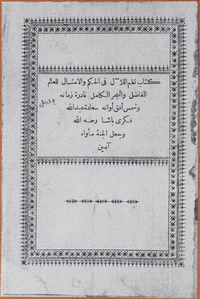 كتاب نظم اللآل فى الحكم والامثال للعالم
الفاضل والبحر الكامل نادرة زمانه
وشمس أفق أوانه سعادة عبدالله
فكرى باشا رحمه الله
وجعل الجنة مأواه
آمين